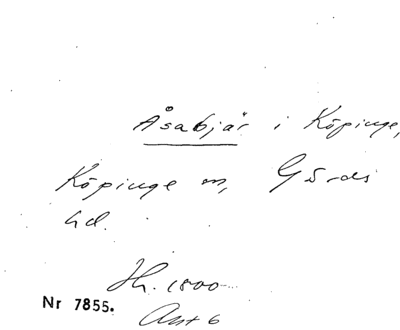 Åsabjär i Köpinge,
Köpinge sn, Gärds
hd.
Hh. 1800
Nr 7855.
Ant 6